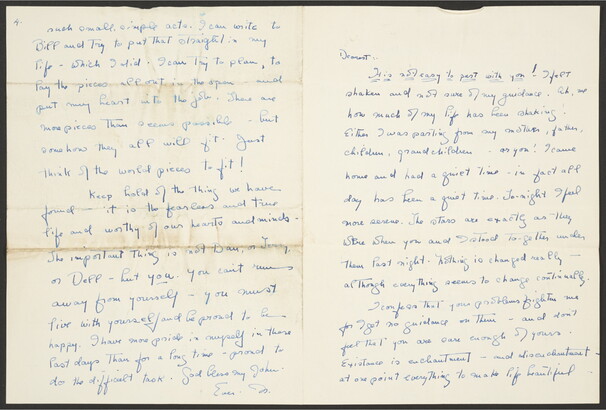 4.
such small, simple acts. I can write to
Bill and try to put that straight in my
life - which I did. I can try to plan, to
lay the pieces all out in the open - and
put my heart into the job. There are
more pieces than seems possible - but
somehow they all will fit. Just
think of the world pieces to fit!
Keep hold of the thing we have
found - it is the fearless and true
life and worthy of our hearts and minds -
The important thing is not Dan, or Jerry,
or Dell - but you. You can't run
away from yourself - you must
live with yourself and be proud to be
happy. I have more pride in myself in these
last days than for a long time - proud to
do the difficult task. God bless my John.
Dearest -
It is not easy to part with you! I felt
shaken and not sure of my guidance. Oh, me
how much of my life has been shaking.
Either I was parting from my mother, father,
children, grandchildren - or you! I came
home and had a quiet time - in fact all
day has been a quiet time. To-night I feel
more serene. The stars are exactly as they
were when you and I stood together under
them last night. Nothing is changed really -
although everything seems to change continually.
I confess that your problems frighten me
for I get no guidance on them - and don't
feel that you are sure enough of yours.
Existence is enchantment - and disenchantment -
at one point everything to make life beautiful